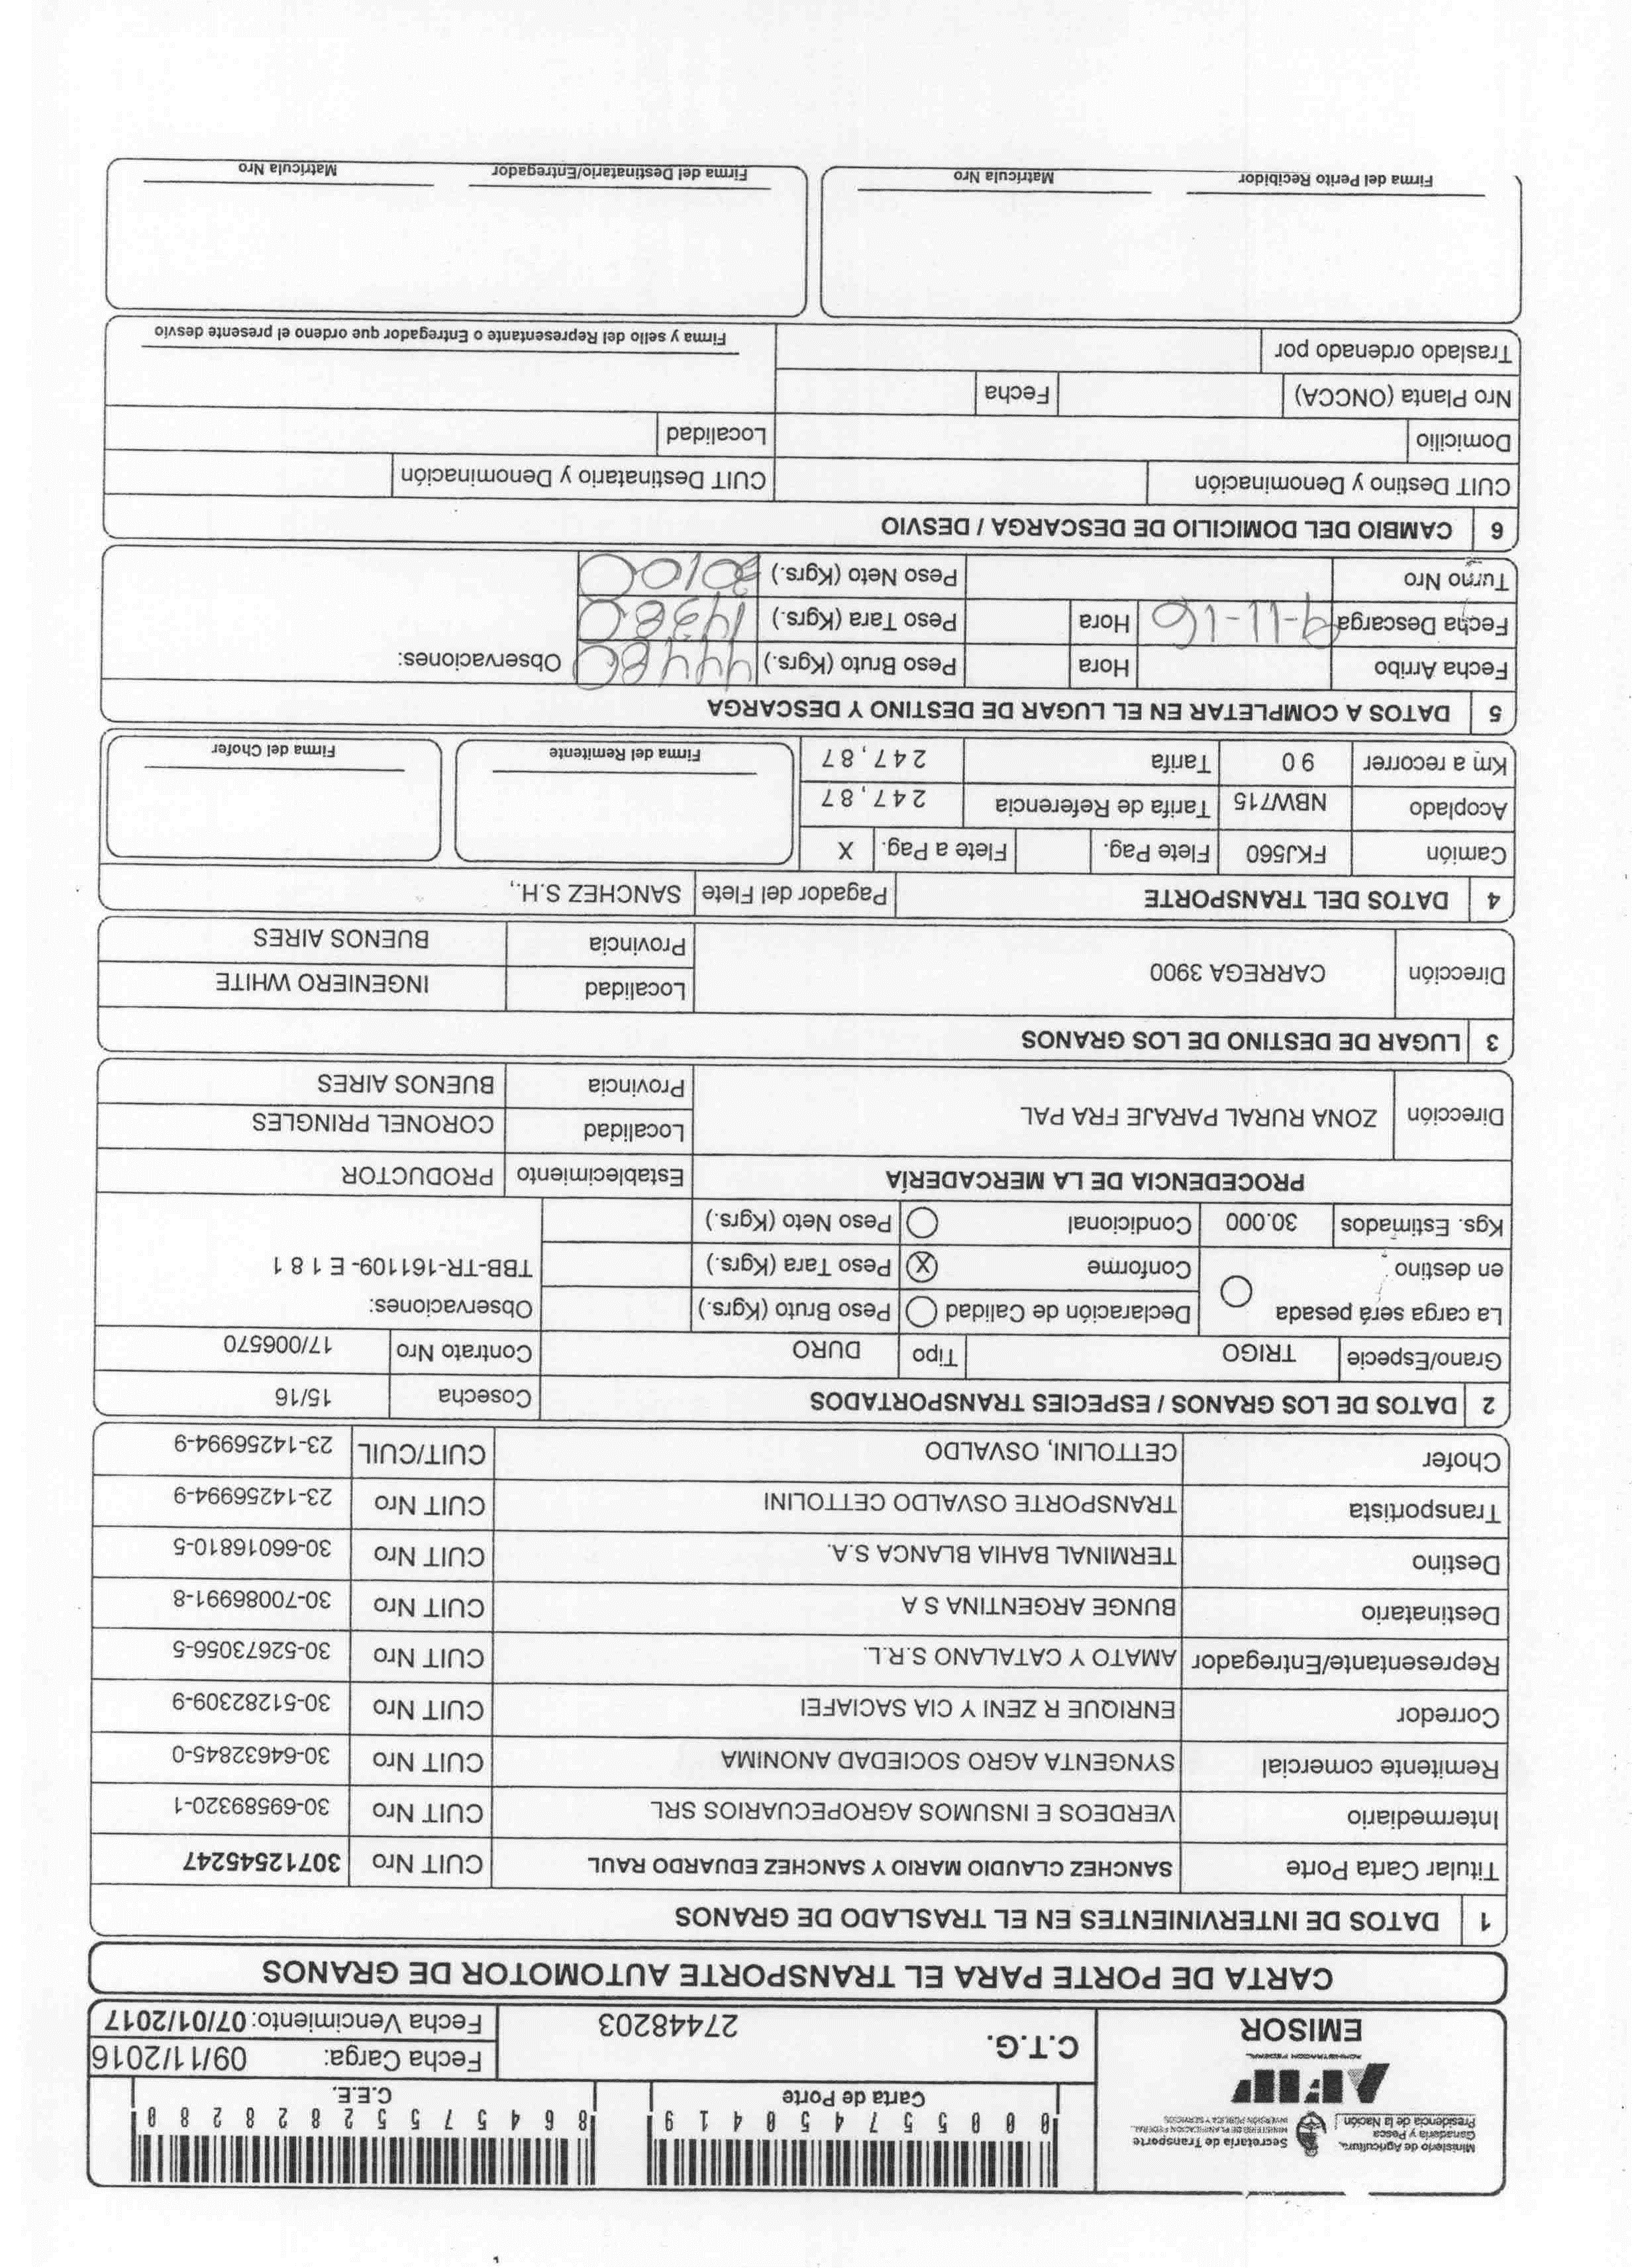 Ministerio de Agricultura,
Ganadería y Pesca
Presidencia de la Nación
Secretaría de Transporte
MINISTERIO DE PLANIFICACION FEDERAL,
INVERSIÓN PÚBLICA Y SERVICIOS
AFIP
ADMINISTRACION FEDERAL
EMISOR
0 0 0 5 5 7 4 5 0 4 1 9
Carta de Porte
8 6 4 5 7 5 5 2 8 2 8 2 8 8
C.E.E.
C.T.G. 27448203
Fecha Carga: 09/11/2016
Fecha Vencimiento: 07/01/2017
CARTA DE PORTE PARA EL TRANSPORTE AUTOMOTOR DE GRANOS
1 DATOS DE INTERVINIENTES EN EL TRASLADO DE GRANOS
Titular Carta Porte SANCHEZ CLAUDIO MARIO Y SANCHEZ EDUARDO RAUL CUIT Nro 30712545247
Intermediario VERDEOS E INSUMOS AGROPECUARIOS SRL CUIT Nro 30-69589320-1
Remitente comercial SYNGENTA AGRO SOCIEDAD ANONIMA CUIT Nro 30-64632845-0
Corredor ENRIQUE R ZENI Y CIA SACIAFEI CUIT Nro 30-51282309-9
Representante/Entregador AMATO Y CATALANO S.R.L. CUIT Nro 30-52673056-5
Destinatario BUNGE ARGENTINA S A CUIT Nro 30-70086991-8
Destino TERMINAL BAHIA BLANCA S.A. CUIT Nro 30-66016810-5
Transportista TRANSPORTE OSVALDO CETTOLINI CUIT Nro 23-14256994-9
Chofer CETTOLINI, OSVALDO CUIT/CUIL 23-14256994-9
2 DATOS DE LOS GRANOS / ESPECIES TRANSPORTADOS Cosecha 15/16
Grano/Especie TRIGO Tipo DURO Contrato Nro 17/006570
La carga será pesada en destino
Declaración de Calidad Peso Bruto (Kgrs.) Observaciones:
Conforme X Peso Tara (Kgrs.) TBB-TR-161109- E 1 8 1
Kgs. Estimados 30.000 Condicional Peso Neto (Kgrs.)
PROCEDENCIA DE LA MERCADERÍA Establecimiento PRODUCTOR
Dirección ZONA RURAL PARAJE FRA PAL Localidad CORONEL PRINGLES
Provincia BUENOS AIRES
3 LUGAR DE DESTINO DE LOS GRANOS
Dirección CARREGA 3900 Localidad INGENIERO WHITE
Provincia BUENOS AIRES
4 DATOS DEL TRANSPORTE Pagador del Flete SANCHEZ S.H.,
Camión FKJ560 Flete Pag. Flete a Pag. X
Acoplado NBW715 Tarifa de Referencia 247,87
Km a recorrer 90 Tarifa 247,87
Firma del Remitente Firma del Chofer
5 DATOS A COMPLETAR EN EL LUGAR DE DESTINO Y DESCARGA
Fecha Arribo Hora Peso Bruto (Kgrs.) 44480 Observaciones:
Fecha Descarga 9-11-16 Hora Peso Tara (Kgrs.) 14380
Turno Nro Peso Neto (Kgrs.) 30100
6 CAMBIO DEL DOMICILIO DE DESCARGA / DESVIO
CUIT Destino y Denominación CUIT Destinatario y Denominación
Domicilio Localidad
Nro Planta (ONCCA) Fecha
Traslado ordenado por
Firma y sello del Representante o Entregador que ordeno el presente desvio
Firma del Perito Recibidor Matricula Nro Firma del Destinatario/Entregador Matricula Nro